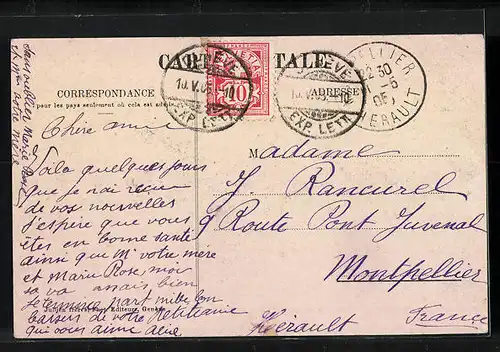 CARTE POSTALE
CORRESPONDANCE
pour les pays seulement où cela est admis
ADRESSE
GENÈVE
10.V.05. 10
EXP. LETT.
HELVETIA
10
GENÈVE
10.V.05. 10
EXP. LETT.
22 30
-5
HÉRAULT
Chère amie
Voila quelques jours
que je n'ai reçu
de vos nouvelles
J'espère que vous
êtes en bonne santé
ainsi que Mr votre mère
et Marie Rose moi
sa va bien
Je termine part mille bon
baisers de votre
qui vous aime
sans oublier Marie Rose
votre mère
Madame
J. Rancurel
9 Route Pont Juvenal
Montpellier
Hérault France
Jullien frères, Phot. Editeurs, Genève